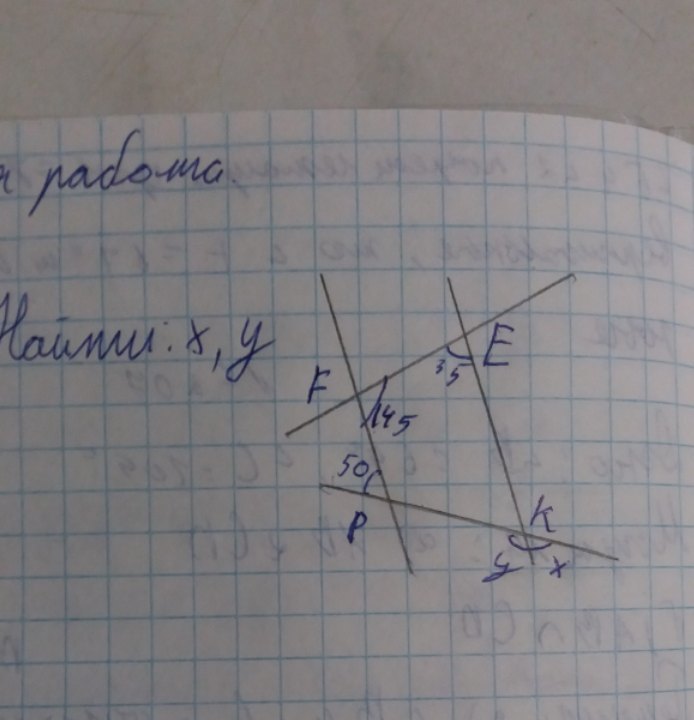 работа.
Найти: x, y
F
E
35
145
50
P
K
y x